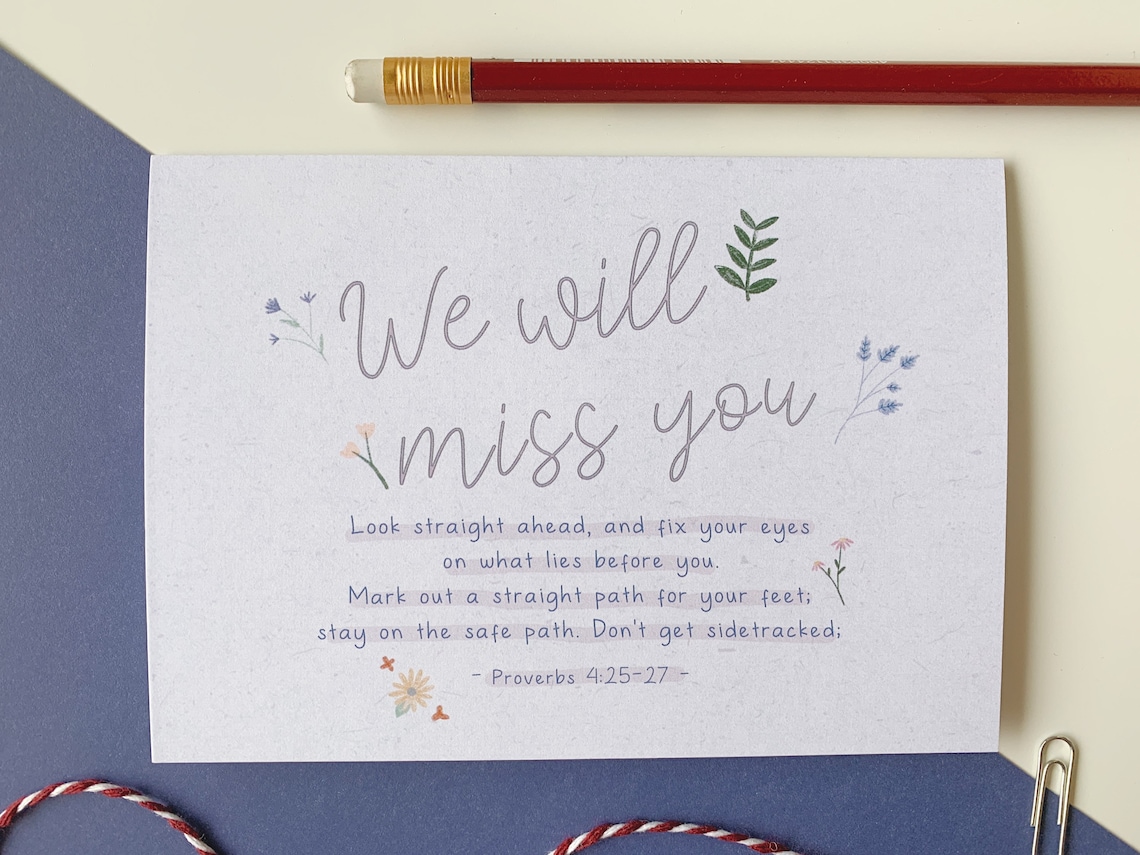 We will
miss you
Look straight ahead, and fix your eyes
on what lies before you.
Mark out a straight path for your feet;
stay on the safe path. Don't get sidetracked;
- Proverbs 4:25-27 -